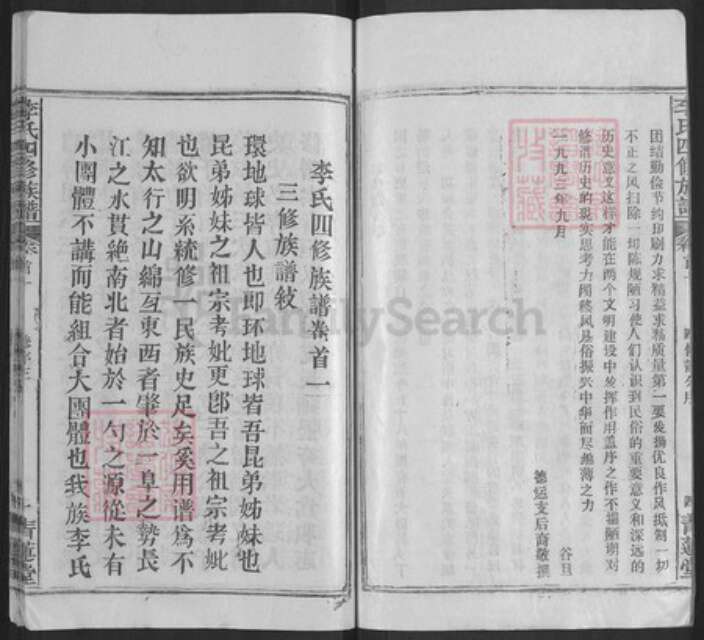 李氏四修族譜
团结勤俭节约印刷力求精益求精质量第一要发扬优良作风抵制一切
不正之风扫除一切陈规陋习使人们认识到民俗的重要意义和深远的
历史意义这样才能在两个文明建设中发挥作用盖序之作不揣陋谢对
修谱历史的现实思考力图移风易俗振兴中华而尽绵薄之力
一九九三年九月
谷旦
德运支后裔敬撰
青蓮堂
李氏四修族譜卷首一
三修族譜敘
環地球皆人也即环地球皆吾昆弟姊妹也
昆弟姊妹之祖宗考妣更卽吾之祖宗考妣
也欲明系統修一民族史足矣奚用谱為不
知太行之山綿亙東西者肇於一阜之勢長
江之水貫絶南北者始於一勺之源從未有
小團體不講而能組合大團體也我族李氏
李氏四修族譜
卷首一
青蓮堂
FamilySearch